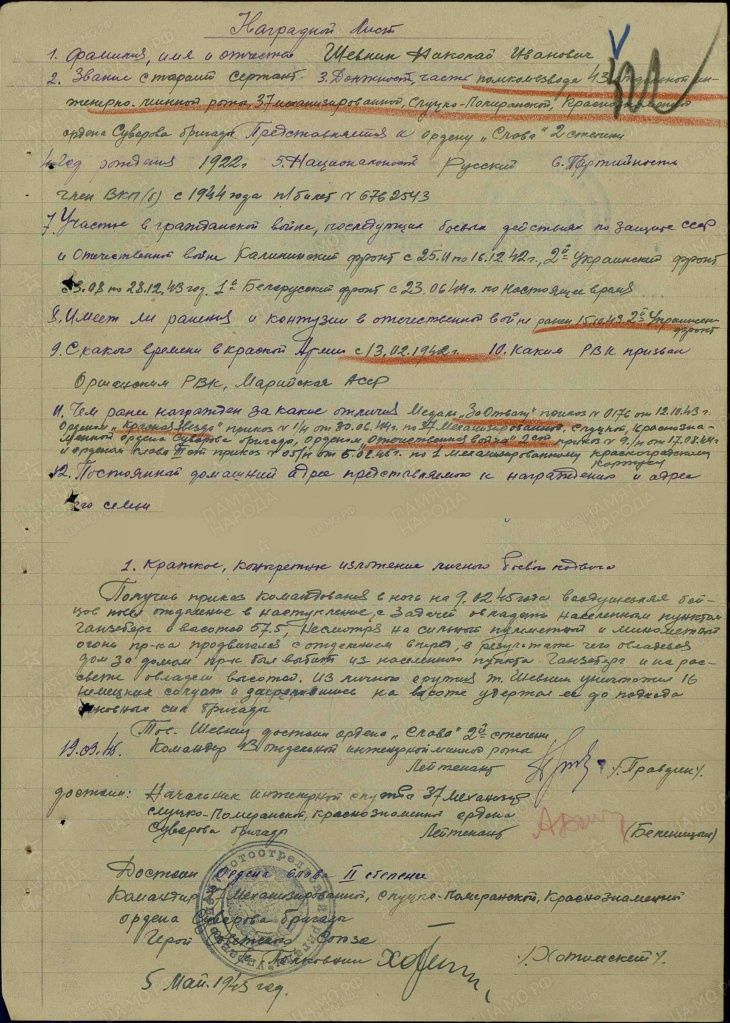 Наградной Лист
1. Фамилия, имя и отчество Шевнин Николай Иванович
2. Звание старший сержант 3. Должность, часть помкомвзвода 43 отдельной ин-
женерно-минной роты, 37 механизированной, Слуцко-Померанской, Краснознаменной
ордена Суворова бригады Представляется к ордену „Слава" 2 степени
4. Год рождения 1922г 5. Национальность Русский 6. Партийность
член ВКП(б) с 1944 года п/билет № 6762543
7. Участие в гражданской войне, последующих боевых действиях по защите СССР
и Отечественной войне Калининский фронт с 25.11 по 16.12.42г., 2й Украинский фронт
с 3.08 по 28.12.43 год, 1й Белорусский фронт с 23.06.44г. по настоящее время
8. Имеет ли ранения и контузии в отечественной войне ранен 15.10.43 2й Украинский
фронт
9. С какого времени в Красной Армии с 13.02.1942г. 10. Каким РВК призван
Оршанским РВК, Марийская АССР
11. Чем ранее награжден за какие отличия Медаль „За Отвагу" приказ № 0176 от 12.10.43г.
Орденом „Красная Звезда" приказ № 1/н от 30.06.44г. по 37 Механизированной, Слуцкой, Краснозна-
менной ордена Суворова бригаде, Орденом „Отечественная война" 2 ст приказ № 9/н от 17.08.44г
и орденом Слава III ст приказ № 05/н от 5.02.45г. по 1 Механизированному Красноградскому
корпусу
12. Постоянный домашний адрес представляемого к награждению и адрес
его семьи
1. Краткое, конкретное изложение личного боевого подвига
Получив приказ командования в ночь на 9.02.45 года воодушевляя бой-
цов повел отделение в наступление, с задачей овладеть населенным пунктом
Ганзеберг и высотой 57.5, несмотря на сильный пулеметный и минометный
огонь пр-ка продвигался с отделением вперед, в результате чего овладевая
дом за домом пр-к был выбит из населенного пункта Ганзеберг и на рас-
свете овладел высотой. Из личного оружия т. Шевнин уничтожил 16
немецких солдат и закрепившись на высоте удержал ее до подхода
основных сил бригады
Тов. Шевнин достоин ордена „Слава" 2й степени
19.03.45. Командир 43 отдельной инженерной минной роты
Лейтенант /Правдин/
достоин: Начальник инженерной службы 37 Механизир
Слуцко-Померанской, Краснознаменной ордена
Суворова бригады Лейтенант (Беленицкий)
Достоин Ордена Слава II степени
Командир Механизированной, Слуцко-Померанской, Краснознаменной
ордена Суворова бригады
Герой Советского Союза
Полковник /Хотимский/
5 Май 1945 год.
ПАМЯТЬ НАРОДА
ЦАМО.РФ